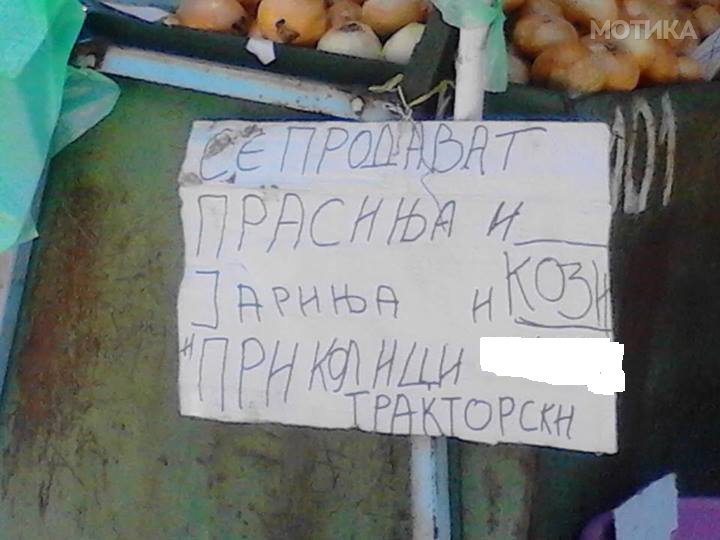 МОТИКА
СЕ ПРОДАВАТ
101
ПРАСИЊА И
ЈАРИЊА И КОЗИ
И ПРИКОЛИЦИ
ТРАКТОРСКИ